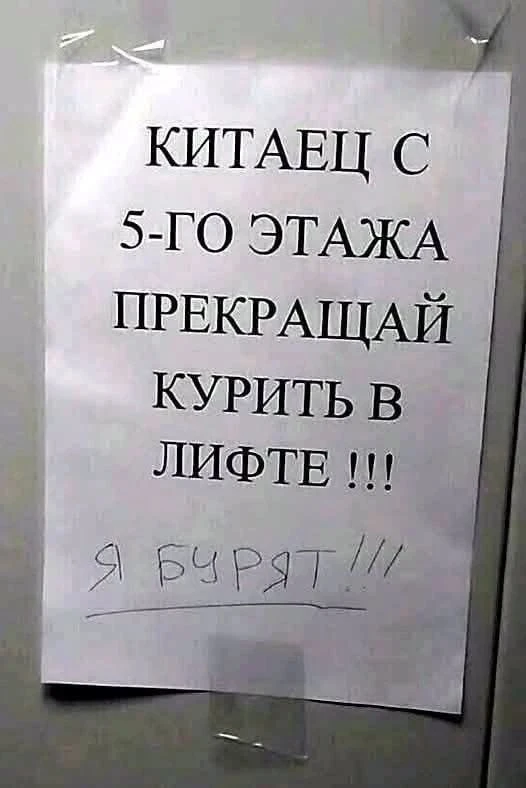 КИТАЕЦ С
5-ГО ЭТАЖА
ПРЕКРАЩАЙ
КУРИТЬ В
ЛИФТЕ !!!
Я БУРЯТ!!!